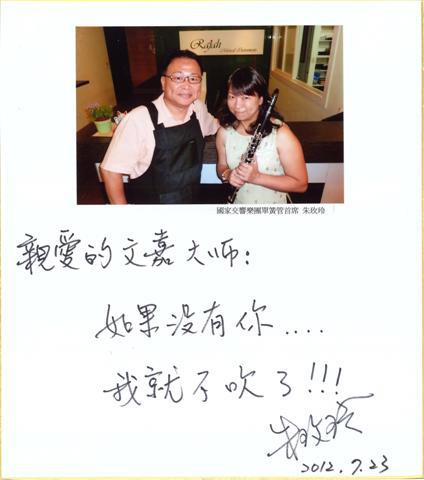 Rajah
Musical Instruments
國家交響樂團單簧管首席 朱玫玲
親愛的文嘉大师:
如果没有你....
我就不吹了!!!
朱玫玲
2012.7.23